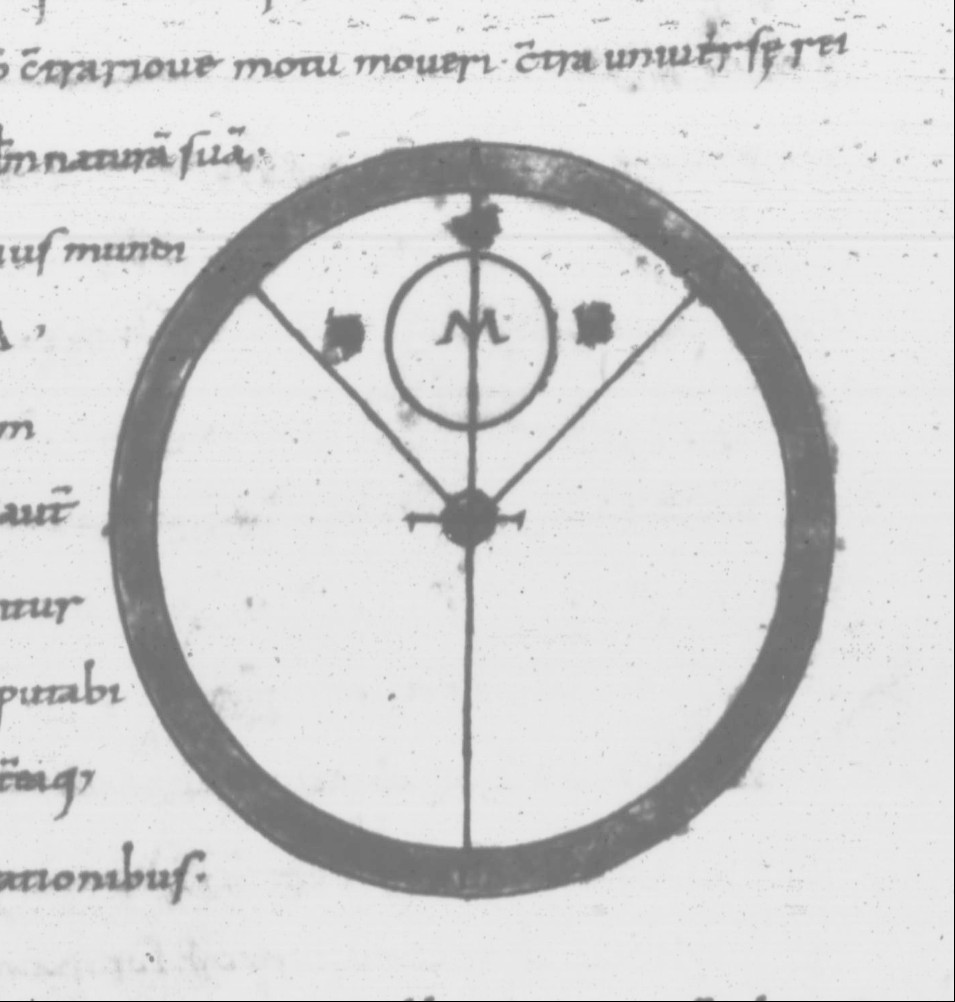 c̄trarioue motu moueri · c̄tra uniuersę rei
naturā suā ·
ius mundi
m
aut̄
ntur
M
putabi
ationibus ·